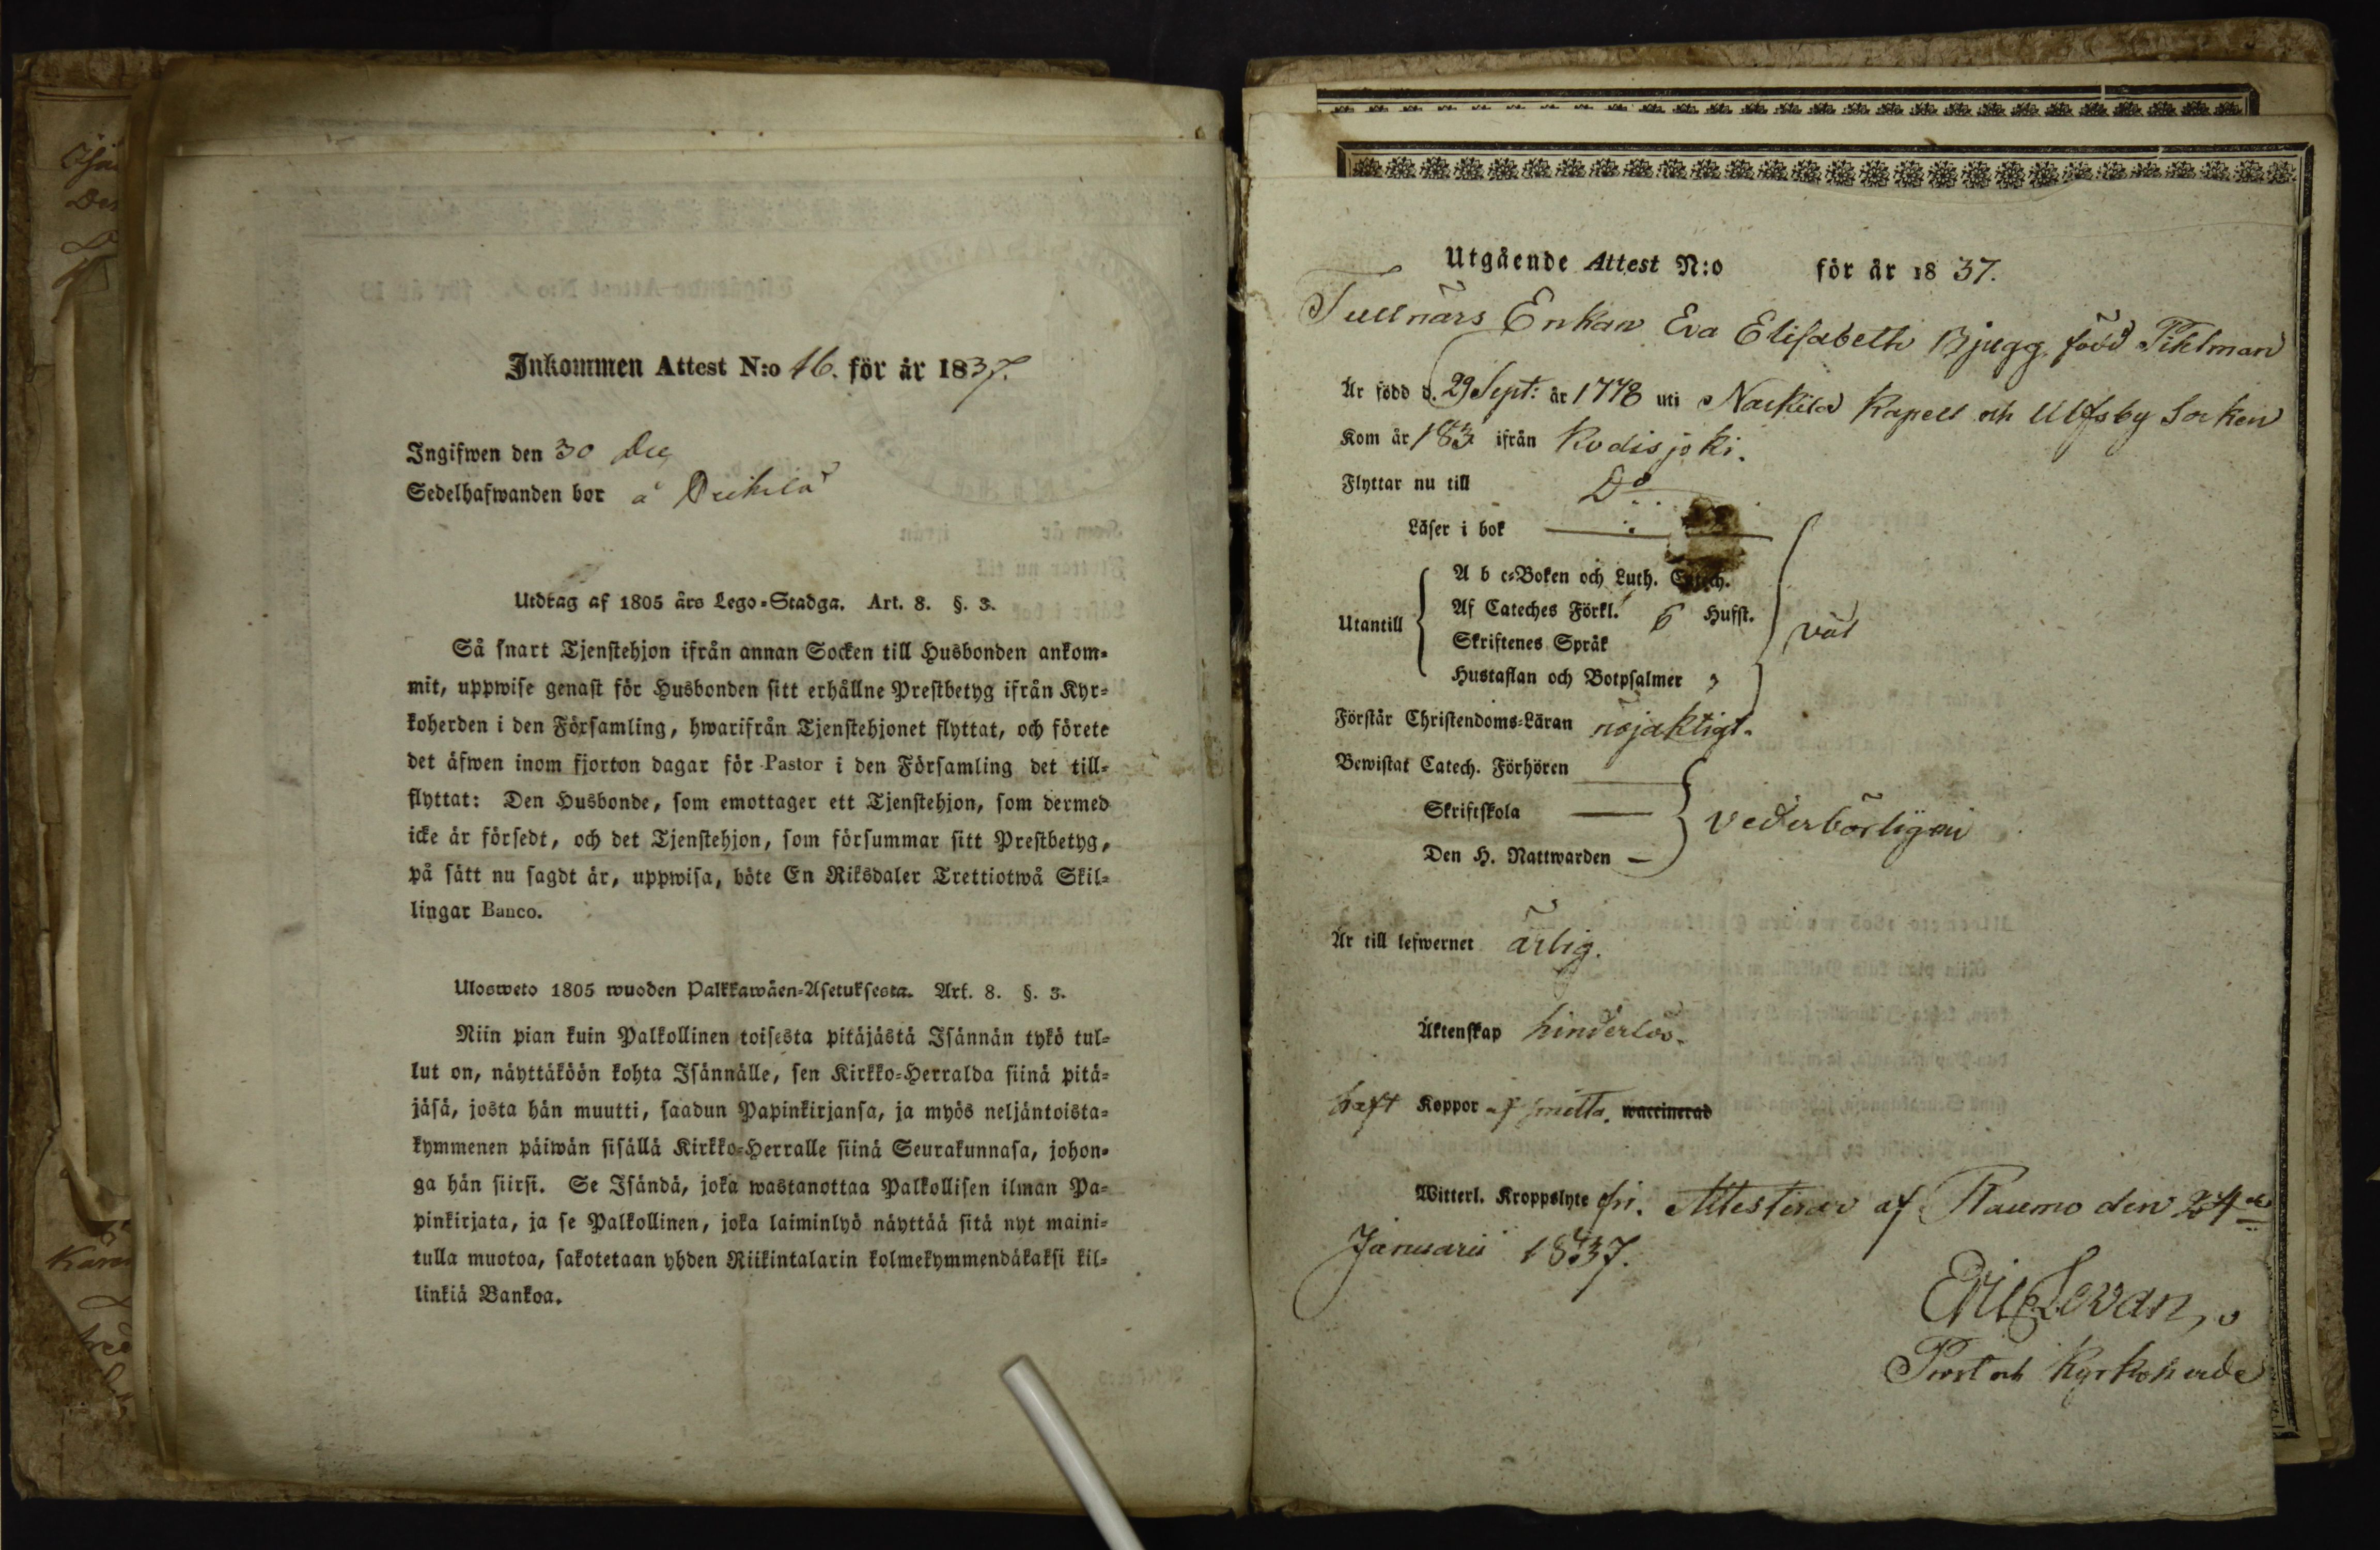 Inkommen Attest N:o 16. för år 1837.
Ingifwen den 30 Dec
Sedelhafwanden bor å
Utdrag af 1805 års Lego-Stadga. Art. 8. §. 3.
Så snart Tjenstehjon ifrån annan Socken till Husbonden ankom-
mit, uppwise genast för Husbonden sitt erhållne Prestbetyg ifrån Kyr-
koherden i den Församling, hwarifrån Tjenstehjonet flyttat, och förete
det äfwen inom fjorton dagar för Pastor i den Församling det till-
flyttat: Den Husbonde, som emottager ett Tjenstehjon, som dermed
icke är försedt, och det Tjenstehjon, som försummar sitt Prestbetyg,
på sätt nu sagdt är, uppwisa, böte En Riksdaler Trettiotwå Skil-
lingar Banco.
Ulosweto 1805 wuoden Palkkawäen-Asetuksesta. Art. 8. §. 3.
Niin pian kuin Palkollinen toisesta pitäjästä Isännän tykö tul-
lut on, näyttäköön kohta Isännälle, sen Kirkko-Herralda siinä pitä-
jäsä, josta hän muutti, saadun Papinkirjansa, ja myös neljäntoista-
kymmenen päiwän sisällä Kirkko-Herralle siinä Seurakunnasa, johon-
ga hän siirsi. Se Isändä, joka wastanottaa Palkollisen ilman Pa-
pinkirjata, ja se Palkollinen, joka laiminlyö näyttää sitä nyt maini-
tulla muotoa, sakotetaan yhden Riikintalarin kolmekymmendäkaksi kil-
linkiä Bankoa.
Utgående Attest N:o för år 1837.
Tullnärs Enkan Eva Elisabeth Bjugg, född Pihlman
Är född d. 29 Sept: år 1778 uti Nackila Kapell och Ulfsby Socken
Kom år 183 ifrån Kodisjoki.
Flyttar nu till Do
Läser i bok
A b c-Boken och Luth. Catech.
Utantill Af Cateches Förkl. 6 Hufst. väl
Skriftenes Språk
Hustaflan och Botpsalmer
Förstår Christendoms-Läran nöjaktigt.
Bewistat Catech. Förhören
Skriftskola vederbörligen
Den H. Nattwarden
Är till lefwernet ärlig.
Äktenskap hinderlös.
haft Koppor af smitta. waccinerad
Witterl. Kroppslyte fri. Attesterar af Raumo den 24de
Januarii 1837.
Eric Levan,
Prost och Kyrkoherde